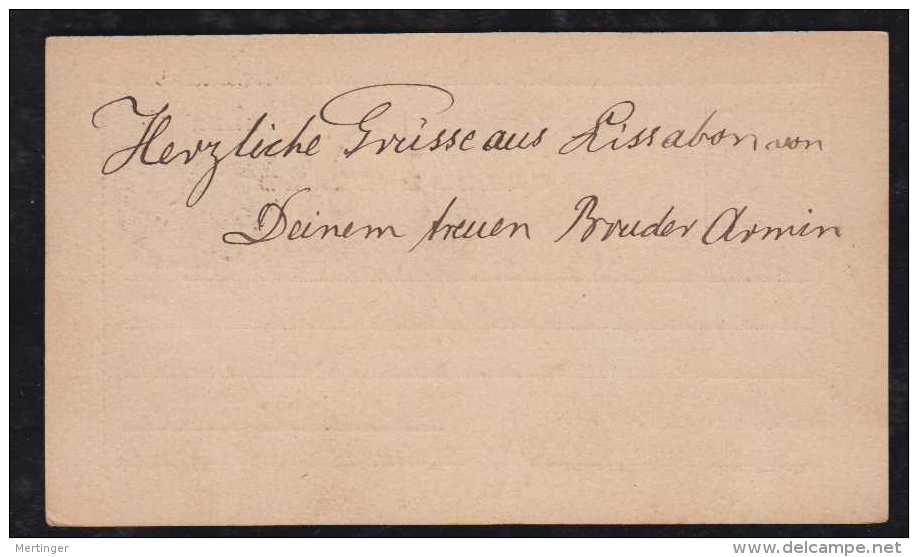 Herzliche Grüsse aus Lissabon von
Deinem treuen Bruder Armin
Mertinger
www.delcampe.net